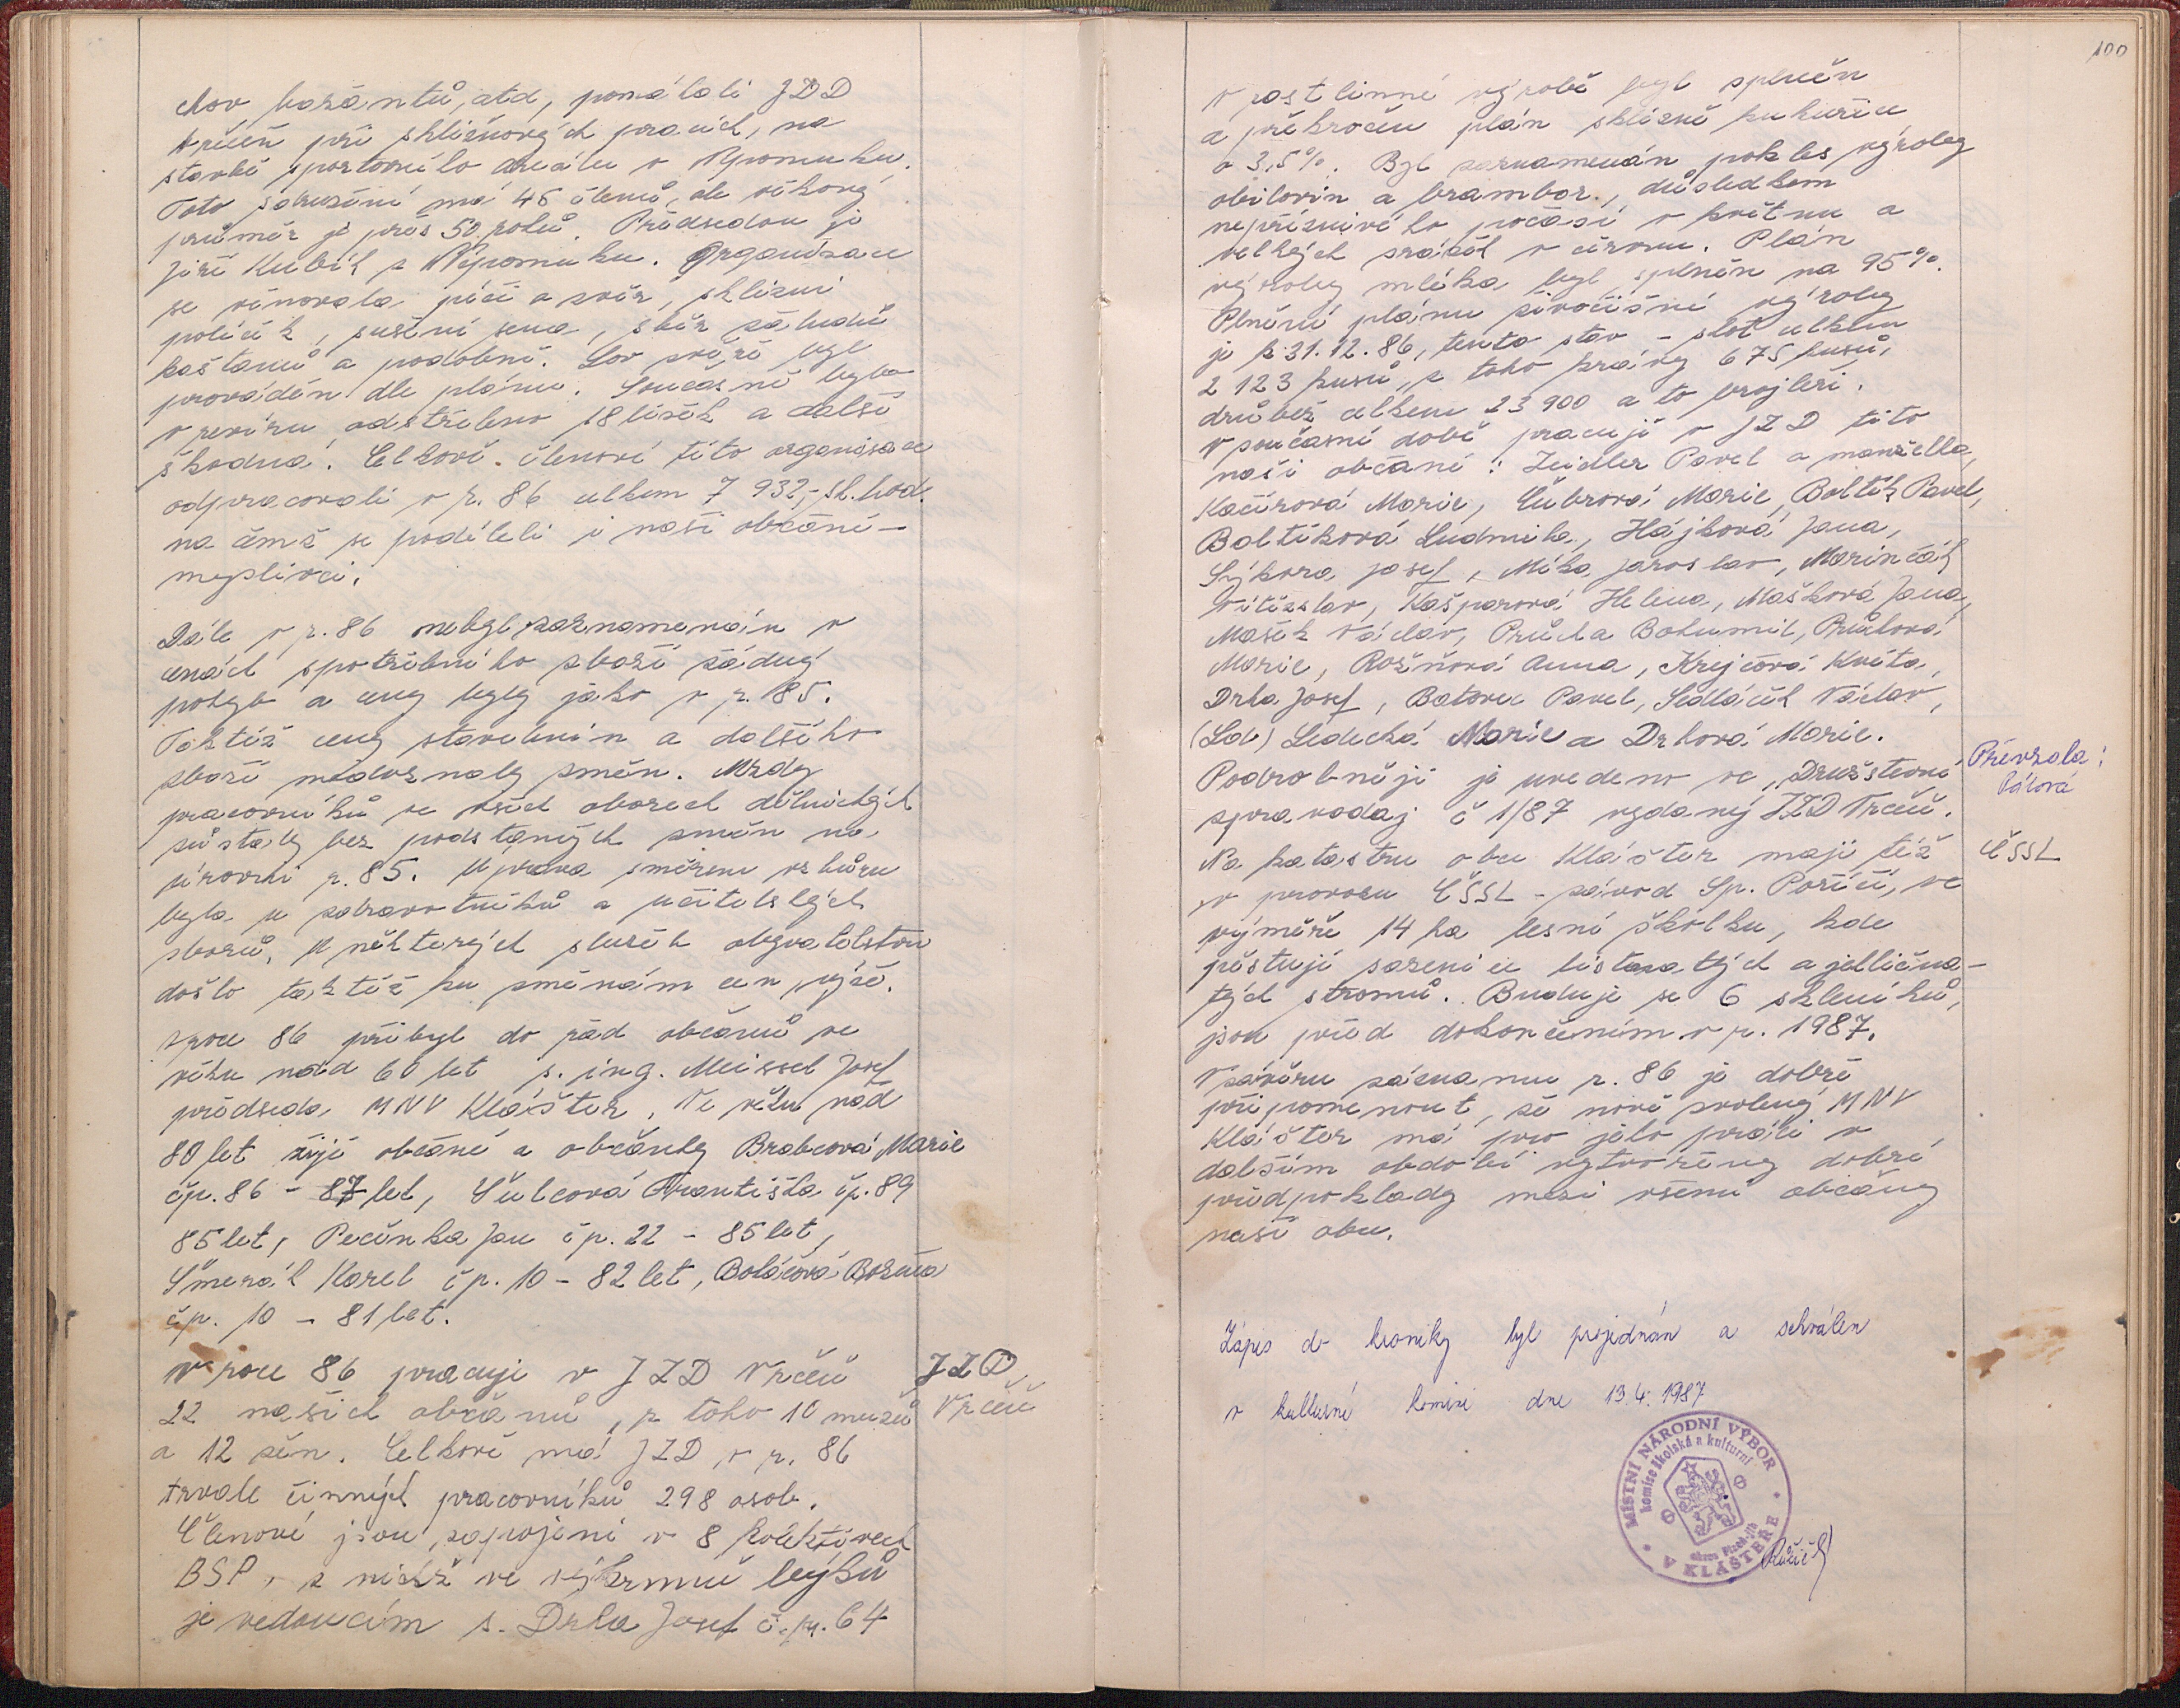 chov bažantů, atd, pomáhali JZD
Vrčeň při sklizňových pracích, na
stavbě sportovního areálu v Nepomuku.
Toto sdružení má 46 členů, ale věkový
průměr je přes 50 roků. Předsedou je
Jiří Kubík z Nepomuku. Organizace
se věnovala péči a zvěř, sklizni
políček, sušení sena, sběr žaludů
kaštanů a podobně. Lov zvěře byl
prováděn dle plánu. Současně bylo
v revíru odstřeleno 18 lišek a další
škodná. Celkově členové této organisace
odpracovali v r. 86 celkem 7 932,- sk. hod.
na čemž se podíleli i naši občané –
myslivci.
Dále v r. 86 nebyl zaznamenán v
cenách spotřebního zboží žádný
pohyb a ceny byly jako v r. 85.
Taktéž ceny stavebnin a dalšího
zboží nedoznaly změn. Mzdy
pracovníků ve všech oborech dělnických
zůstaly bez podstatných změn na
úrovni r. 85. Úprava směrem vzhůru
byla u zdravotníků a učitelských
sborů. U některých služeb obyvatelstvu
došlo taktéž ku změnám cen, výše.
V roce 86 přibyl do řad občanů ve
věku nad 60 let s. ing. Meissel Josef
předseda MNV Klášter. Ve věku nad
80 let žijí občané a občanky Brabcová Marie
čp. 86 – 87 let, Šulcová Františka čp. 89
85 let, Pečínka Jan čp. 22 – 85 let,
Šmerák Karel čp. 10 – 82 let, Boláčová Božena
čp. 10 – 81 let.
V roce 86 pracuje v JZD Vrčeň
JZD
Vrčeň
22 našich občanů, z toho 10 mužů
a 12 žen. Celkově má JZD v r. 86
trvale činných pracovníků 298 osob.
Členové jsou zapojeni v 8 kolektivech
BSP, z nichž ve výkrmně býků
je vedoucím s. Drha Josef č.p. 64
100
V rostlinné výrobě byl splněn
a překročen plán sklizně kukuřice
o 3,5%. Byl zaznamenán pokles výroby
obilovin a brambor, důsledkem
nepříznivého počasí v květnu a
velkých srážek v červnu. Plán
výroby mléka byl splněn na 95%.
Plnění plánu živočišné výroby
je k 31.12.86, tento stav – skot celkem
2 123 kusů, z toho krávy 675 kusů,
drůbež celkem 23 900 a to brojleři.
V současné době pracují v JZD tito
naši občané: Zeidler Pavel a manželka,
Kačírová Marie, Čubrová Marie, Boltík Pavel,
Boltíková Ludmila, Hájková Jana,
Sýkora Josef, Míka Jaroslav, Marinčák
Vítězslav, Kašparová Helena, Mašková Jana,
Mašek Václav, Průcha Bohumil, Průchová
Marie, Rožňová Anna, Krejčová Květa,
Drha Josef, Batovec Pavel, Sedláček Václav,
(Lab) Ledecká Marie a Drhová Marie.
Podrobněji je uvedeno ve „Družstevní
zpravodaj č 1/87 vydaný JZD Vrčeň.
Převzala:
Pátová
Na katastru obce Klášter mají též
ČSSL
v provozu ČSSL – závod Sp. Poříčí, ve
výměře 14 ha lesní školku, kde
pěstují sazenice listnatých a jehlična-
tých stromů. Buduje se 6 skleníků,
jsou před dokončením v r. 1987.
V závěru záznamu r. 86 je dobré
připomenout, že nově zvolený MNV
Klášter má pro jeho práci v
dalším období vytvořeny dobré
předpoklady mezi všemi občany
naší obce.
Zápis do kroniky byl projednán a schválen
v kulturní komisi dne 13.4.1987
MÍSTNÍ NÁRODNÍ VÝBOR
komise školská a kulturní
okres Plzeň-jih
V KLÁŠTEŘE